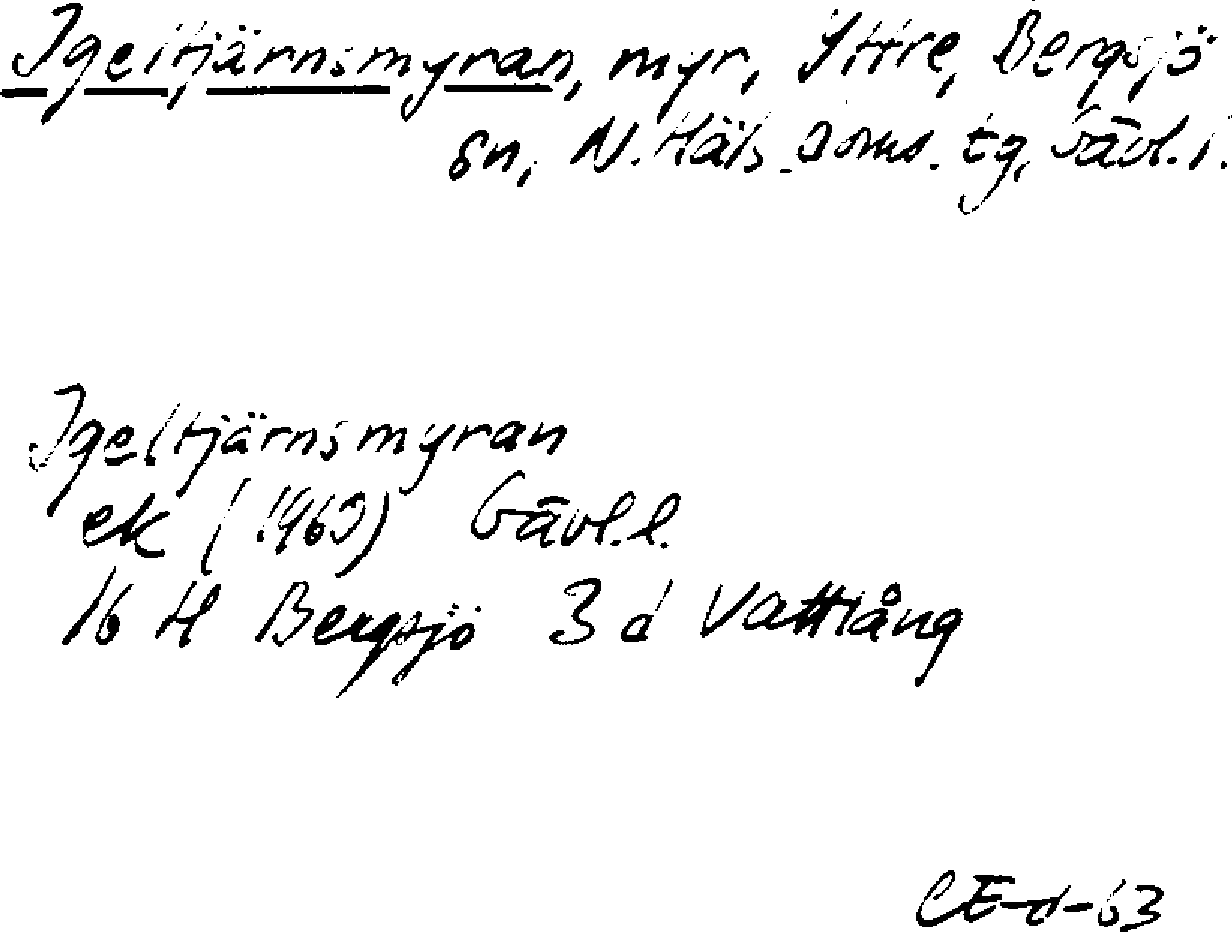 Igeltjärnsmyran, myr, Yttre, Bergsjö
sn, N. Häls. doms. tg, Gävl. l.
Igeltjärnsmyran
ek (1963) Gävl. l.
16 H Bergsjö 3 d Vattlång
CE-d-63